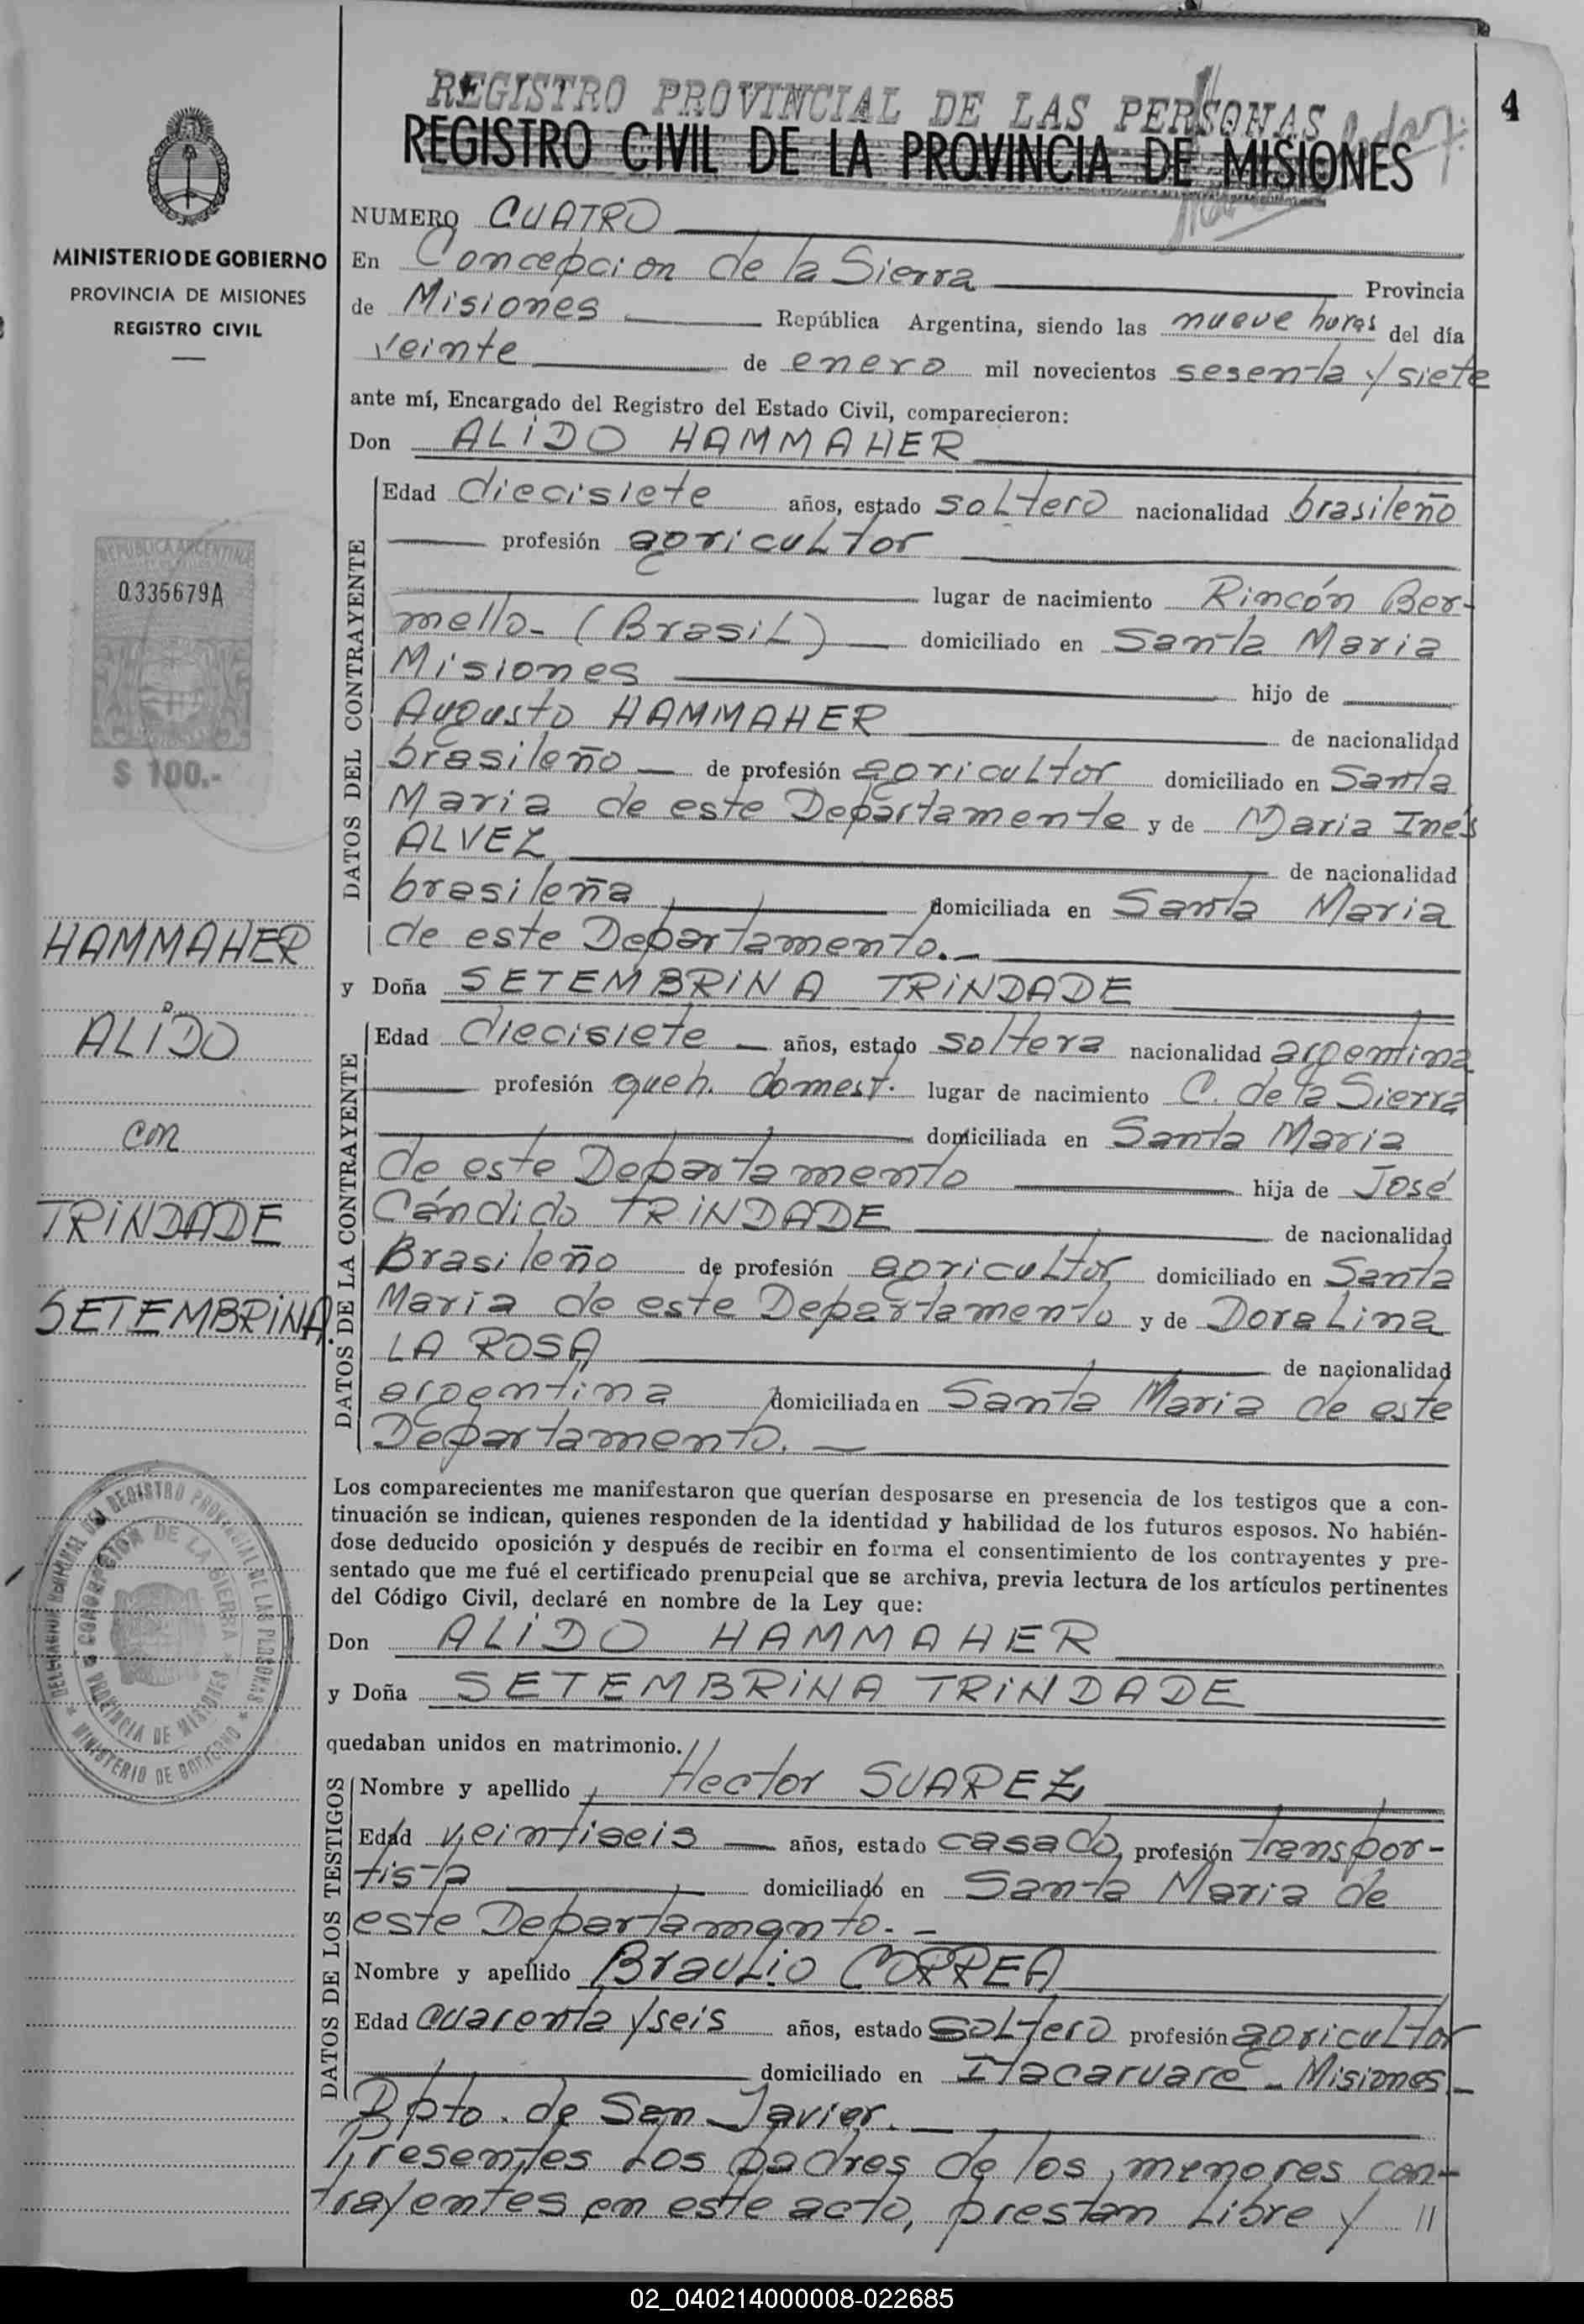 4
REGISTRO PROVINCIAL DE LAS PERSONAS
REGISTRO CIVIL DE LA PROVINCIA DE MISIONES
MINISTERIO DE GOBIERNO
PROVINCIA DE MISIONES
REGISTRO CIVIL
REPUBLICA ARGENTINA
0.335679A
$ 100.-
HAMMAHER
ALIDO
con
TRINDADE
SETEMBRINA.
DELEGACION REGIONAL DEL REGISTRO PROVINCIAL DE LAS PERSONAS
* MINISTERIO DE GOBIERNO *
CONCEPCION DE LA SIERRA
* PROVINCIA DE MISIONES *
NUMERO CUATRO
En Concepcion de la Sierra Provincia
de Misiones República Argentina, siendo las nueve horas del día
veinte de enero mil novecientos sesenta y siete
ante mí, Encargado del Registro del Estado Civil, comparecieron:
Don ALIDO HAMMAHER
DATOS DEL CONTRAYENTE
Edad diecisiete años, estado soltero nacionalidad brasileño
profesión agricultor
lugar de nacimiento Rincón Ber-
mello- (Brasil) domiciliado en Santa Maria
Misiones hijo de
Augusto HAMMAHER de nacionalidad
brasileño de profesión agricultor domiciliado en Santa
Maria de este Departamente y de Maria Inés
ALVEZ de nacionalidad
brasileña domiciliada en Santa Maria
de este Departamento.-
y Doña SETEMBRINA TRINDADE
DATOS DE LA CONTRAYENTE
Edad diecisiete años, estado soltera nacionalidad argentina
profesión queh. domest. lugar de nacimiento C. de la Sierra
domiciliada en Santa Maria
de este Departamento hija de José
Cándido TRINDADE de nacionalidad
Brasileño de profesión agricultor domiciliado en Santa
Maria de este Departamento y de Doralina
LA ROSA de nacionalidad
argentina domiciliada en Santa Maria de este
Departamento.-
Los comparecientes me manifestaron que querían desposarse en presencia de los testigos que a con-
tinuación se indican, quienes responden de la identidad y habilidad de los futuros esposos. No habién-
dose deducido oposición y después de recibir en forma el consentimiento de los contrayentes y pre-
sentado que me fué el certificado prenupcial que se archiva, previa lectura de los artículos pertinentes
del Código Civil, declaré en nombre de la Ley que:
Don ALIDO HAMMAHER
y Doña SETEMBRINA TRINDADE
quedaban unidos en matrimonio.
DATOS DE LOS TESTIGOS
Nombre y apellido Hector SUAREZ
Edad veintiseis años, estado casado, profesión transpor-
tista domiciliado en Santa Maria de
este Departamanto.-
Nombre y apellido Braulio CORREA
Edad cuarenta y seis años, estado soltero profesión agricultor
domiciliado en Itacaruaré - Misiones -
Dpto. de San Javier.
Presentes los padres de los menores con-
trayentes en este acto, prestan libre y //
02_040214000008-022685